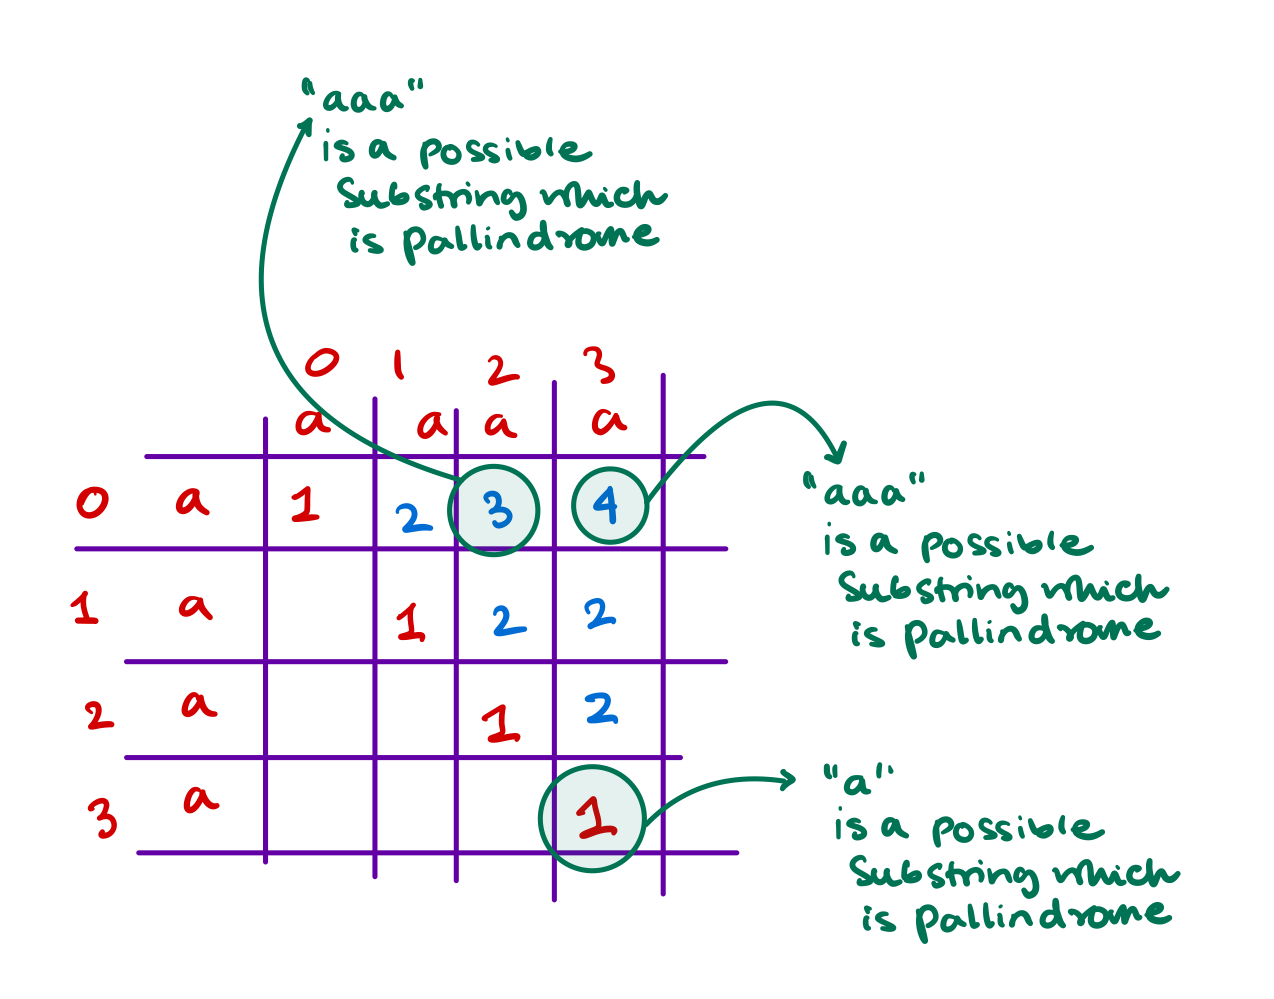 "aaa"
is a possible
Substring which
is pallindrome
0 1 2 3
a a a a
0 a 1 2 3 4
1 a 1 2 2
2 a 1 2
3 a 1
"aaa"
is a possible
Substring which
is pallindrome
"a"
is a possible
Substring which
is pallindrome